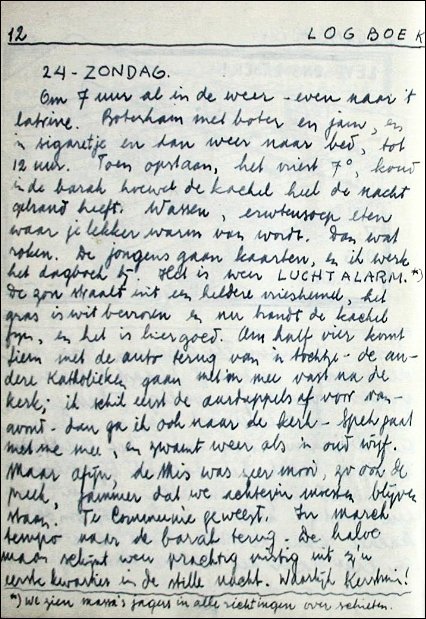 12 LOGBOEK
24 - ZONDAG.
Om 7 uur al in de weer - even naar 't
latrine. Boterham met boter en jam, en
'n sigaretje en dan weer naar bed, tot
12 uur. Toen opstaan, het vriest 7°, koud
in de barak hoewel de kachel heel de nacht
gebrand heeft. Wassen, erwtensoep eten
waar je lekker warm van wordt. Dan wat
roken. De jongens gaan kaarten, en ik werk
het dagboek bij. Het is weer LUCHTALARM. *)
De zon straalt uit een heldere vrieshemel, het
gras is wit bevroren en nu brandt de kachel
fijn, en het is hier goed. Om half vier komt
Siem met de auto terug van 'n tochtje - de an-
dere Katholieken gaan met'm mee vast na de
kerk; ik schil eerst de aardappels af voor van-
avond - dan ga ik ook naar de kerk - Spek gaat
met me mee, en zwamt weer als 'n oud wijf.
Maar afijn, de Mis was zeer mooi, zo ook de
preek, jammer dat we achterin moesten blijven
staan. Te Communie geweest. In march
tempo naar de barak terug. De halve
maan schijnt weer prachtig rustig uit z'n
eerste kwartier in de stille nacht. Waarlijk Kerstmis!
*) We zien massa's jagers in alle richtingen over schieten.